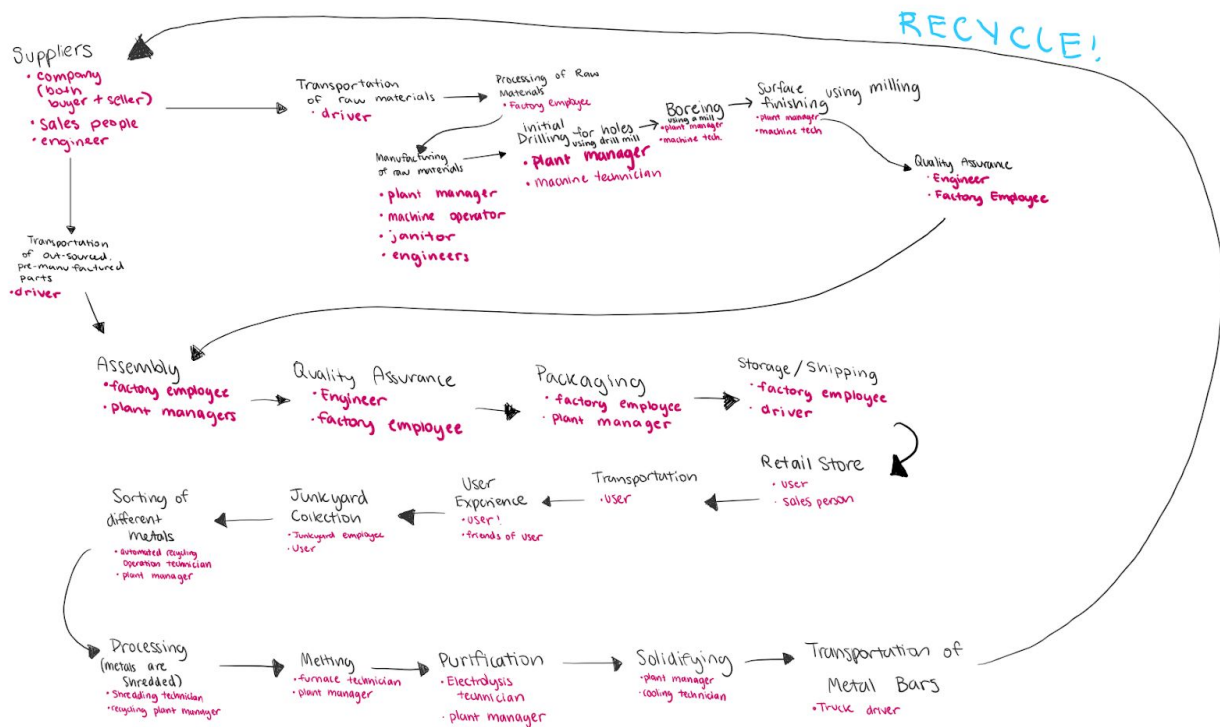 RECYCLE!
Suppliers
• company
(both
buyer + seller)
• Sales people
• engineer
Transportation
of raw materials
• driver
Processing of Raw
Materials
• Factory employee
Manufacturing
of raw materials
• plant manager
• machine operator
• janitor
• engineers
initial
Drilling for holes
using drill mill
• plant manager
• machine technician
Boreing
using a mill
• plant manager
• machine tech
Surface
finishing using milling
• plant manager
• machine tech
Quality Assurance
• Engineer
• Factory Employee
Transportation
of out-sourced
pre-manufactured
parts
• driver
Assembly
• factory employee
• plant managers
Quality Assurance
• Engineer
• factory employee
Packaging
• factory employee
• plant manager
Storage/Shipping
• factory employee
• driver
Retail Store
• user
• sales person
Transportation
• user
User
Experience
• user!
• friends of user
Junkyard
Collection
• Junkyard employee
• User
Sorting of
different
metals
• automated recycling
operation technician
• plant manager
Processing
(metals are
shredded)
• Shreading technician
• recycling plant manager
Melting
• furnace technician
• plant manager
Purification
• Electrolysis
technician
• plant manager
Solidifying
• plant manager
• cooling technician
Transportation of
Metal Bars
• Truck driver